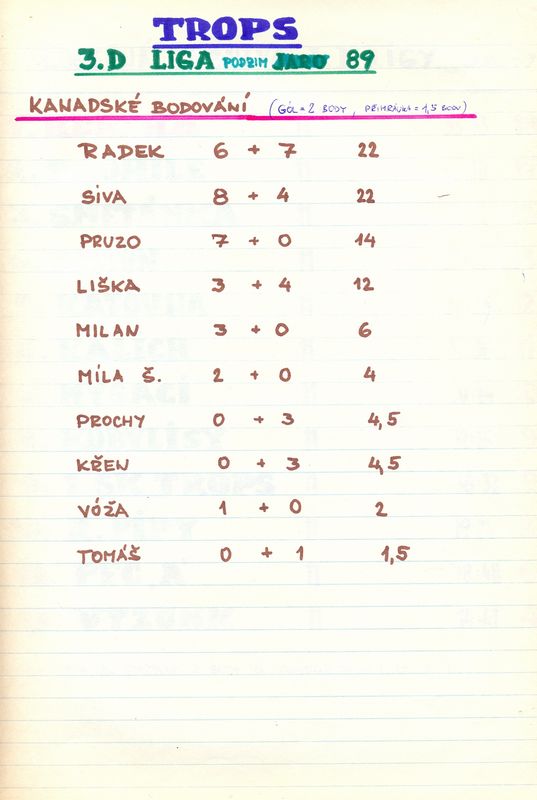 TROPS
3.D LIGA PODZIM JARO 89
KANADSKÉ BODOVÁNÍ (GÓL = 2 BODY, PŘIHRÁVKA = 1,5 BODU)
RADEK 6 + 7 22
SÍVA 8 + 4 22
PRUZO 7 + 0 14
LIŠKA 3 + 4 12
MILAN 3 + 0 6
MÍLA Š. 2 + 0 4
PROCHY 0 + 3 4,5
KŘEN 0 + 3 4,5
VÓŽA 1 + 0 2
TOMÁŠ 0 + 1 1,5